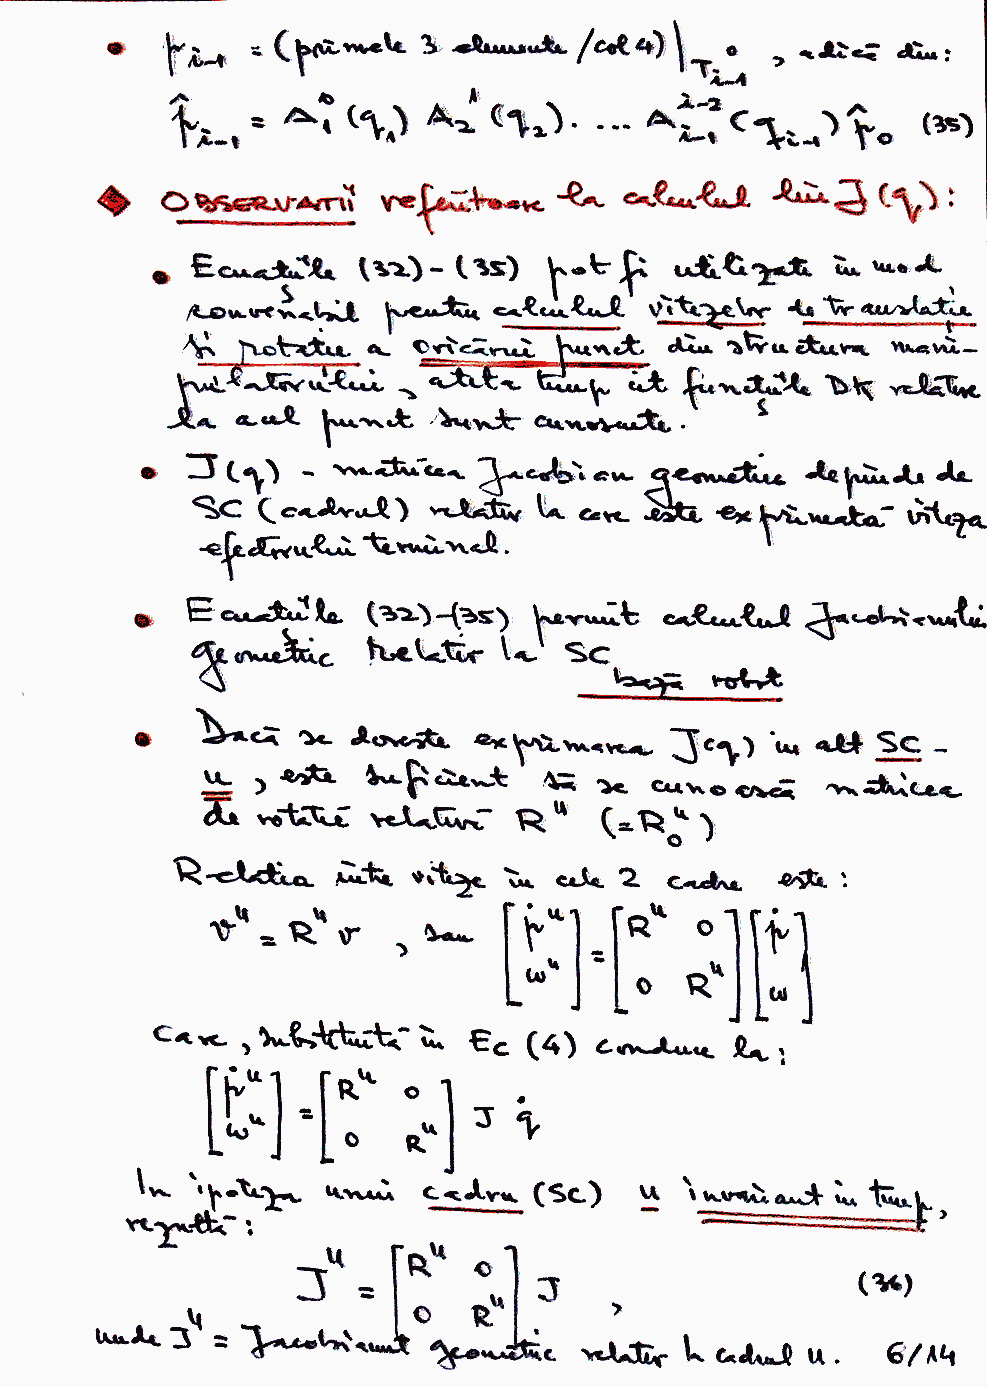 • p_{i-1} = (primele 3 elemente/col 4)|_{T^0_{i-1}}, adică din:
p̂_{i-1} = A^0_1(q_1) A^1_2(q_2). ... A^{i-2}_{i-1}(q_{i-1}) p̂_0 (35)
◆ OBSERVAȚII referitoare la calculul lui J(q):
• Ecuațiile (32)-(35) pot fi utilizate în mod
convenabil pentru calculul vitezelor de translație
și rotație a oricărui punct din structura mani-
pulatorului, atîta timp cît funcțiile DK relative
la acel punct sunt cunoscute.
• J(q) - matricea Jacobian geometric depinde de
SC (cadrul) relativ la care este exprimată viteza
efectorului terminal.
• Ecuațiile (32)-(35) permit calculul Jacobianului
geometric relativ la SC bază robot
• Dacă se dorește exprimarea J(q) în alt SC -
u, este suficient să se cunoască matricea
de rotație relativă R^u (=R^u_0)
Relația între viteze în cele 2 cadre este:
v^u = R^u v , sau [ṗ^u ω^u] = [R^u 0 0 R^u] [ṗ ω]
care, substituită în Ec (4) conduce la:
[ṗ^u ω^u] = [R^u 0 0 R^u] J q̇
In ipoteza unui cadru (SC) u invariant în timp,
rezultă:
J^u = [R^u 0 0 R^u] J , (36)
unde J^u = Jacobianul geometric relativ la cadrul u. 6/14